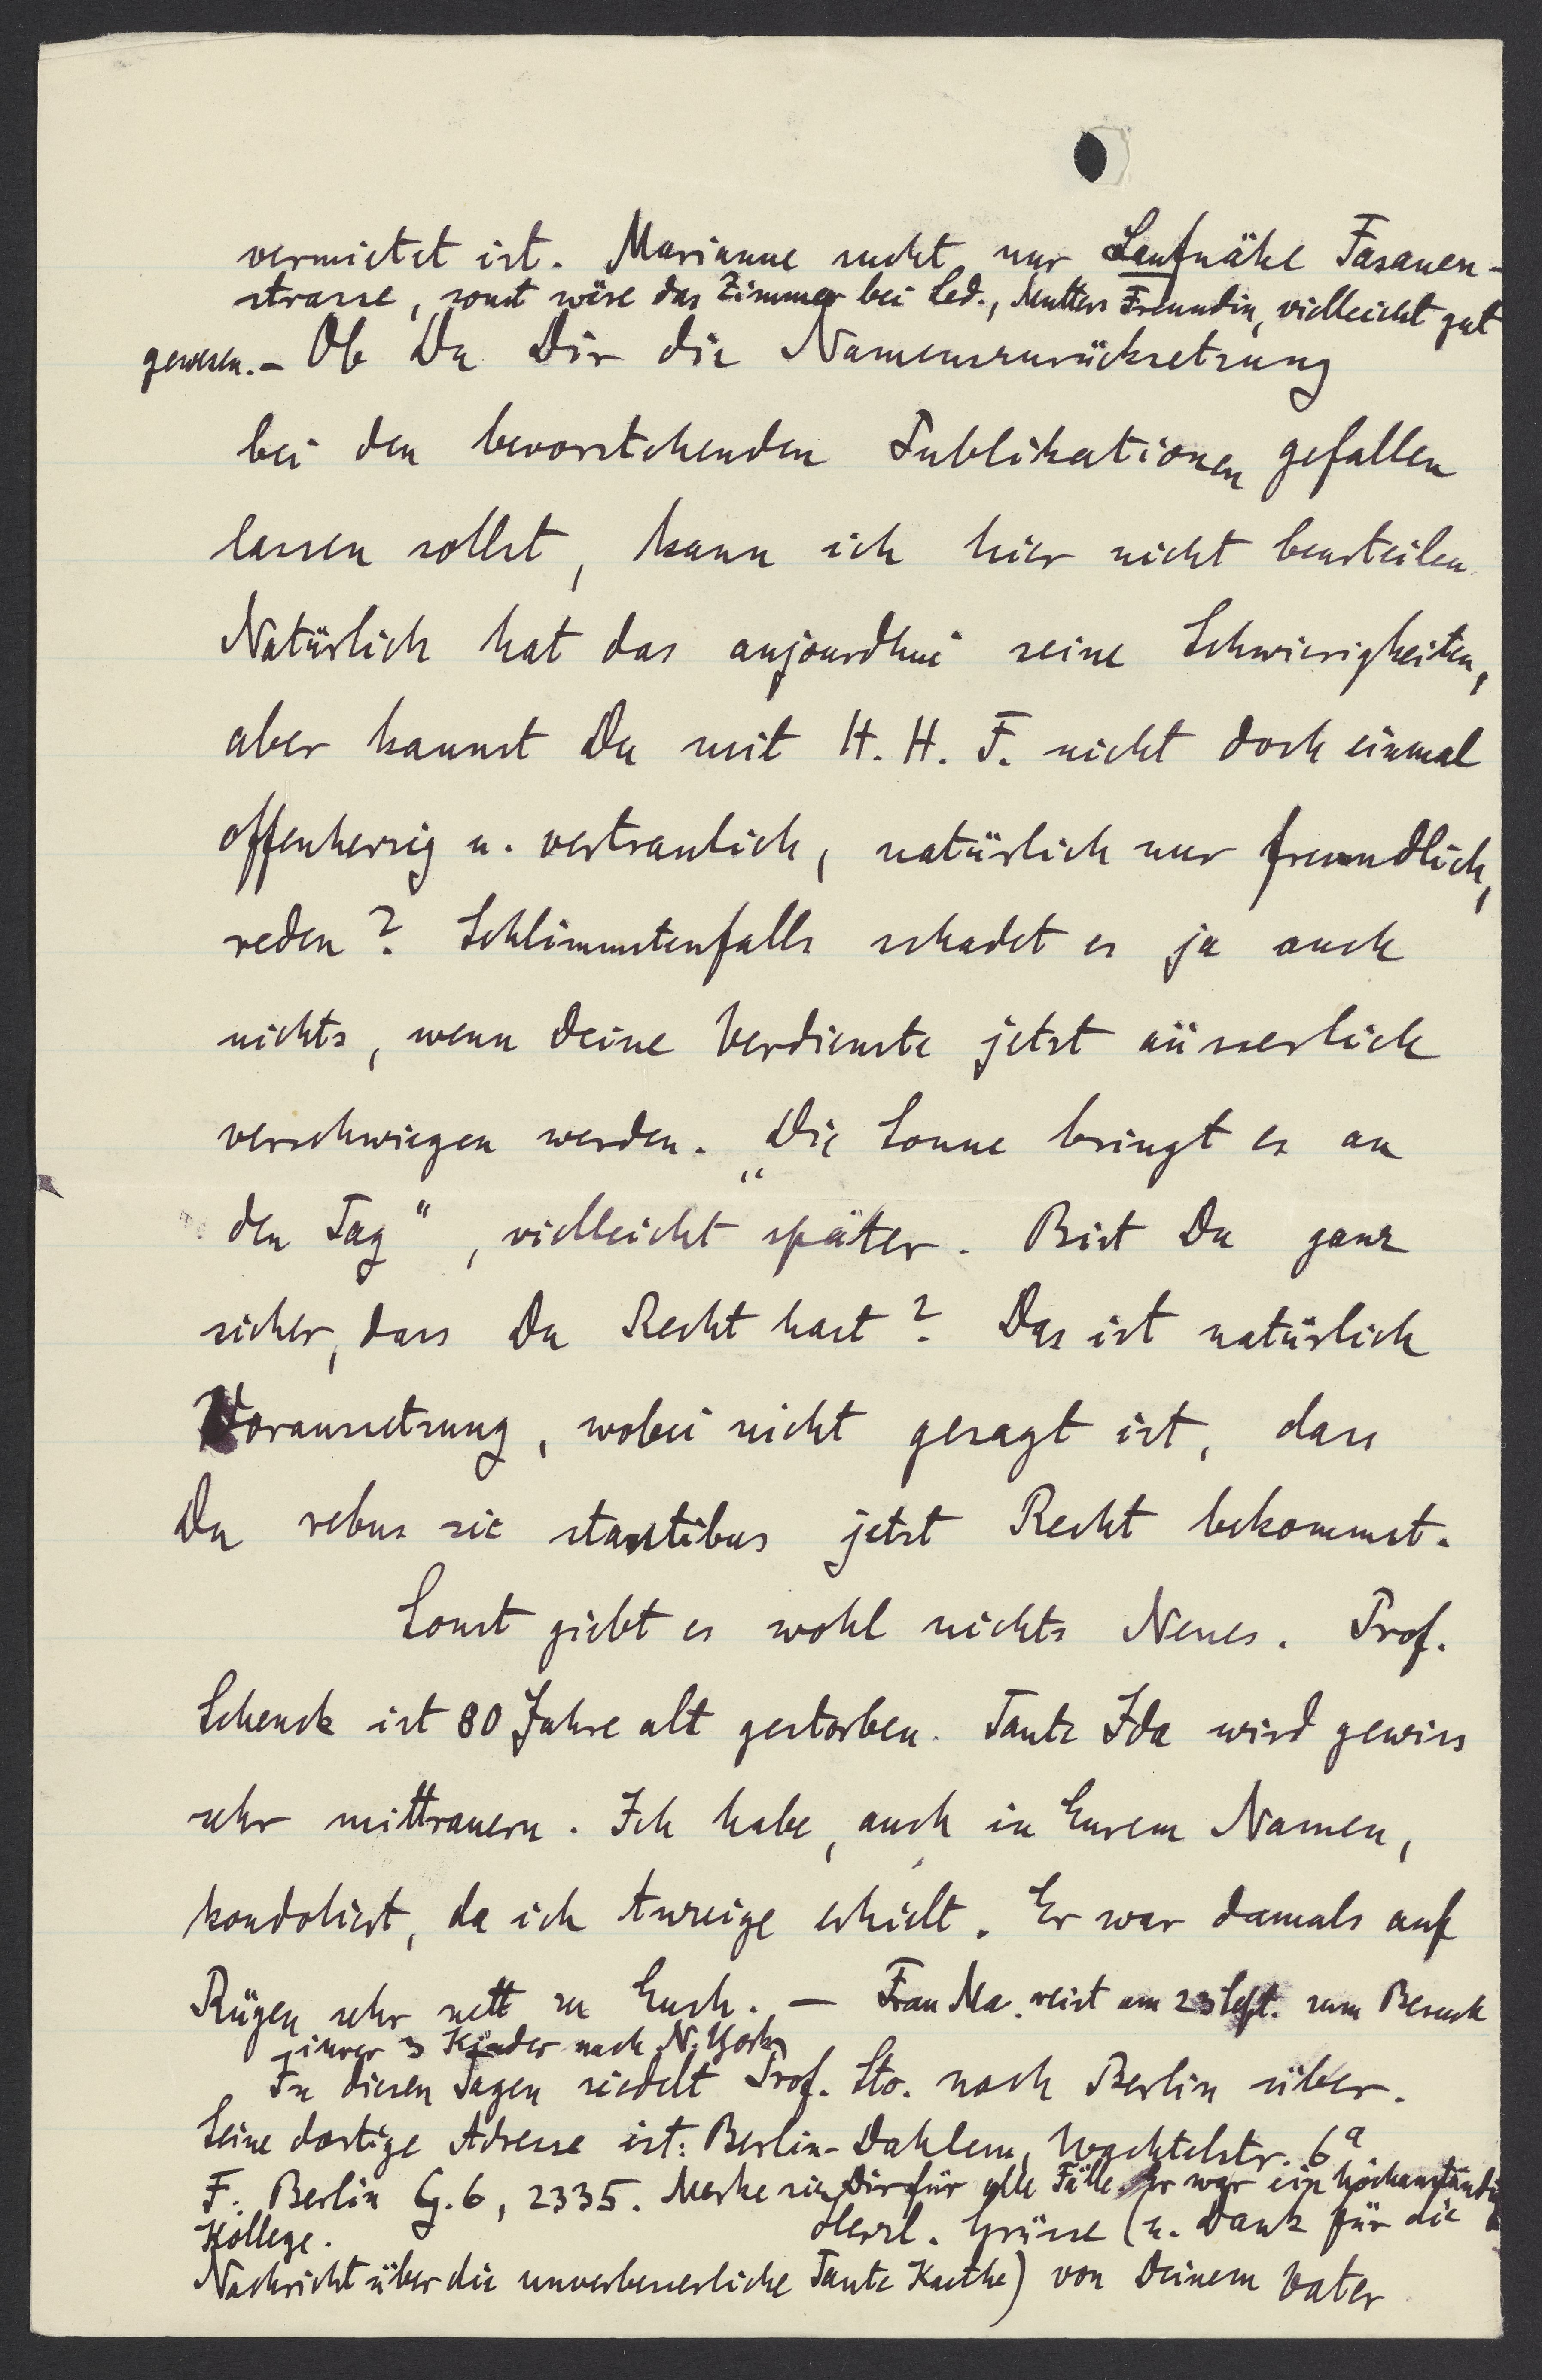 vermietet ist. Marianne sucht nur Laufnähe Fasanen-
strasse, sonst wäre das Zimmer bei Led., Mutters Freundin, vielleicht gut
gewesen. - Ob Du Dir die Namenszurücksetzung
bei den bevorstehenden Publikationen gefallen
lassen sollst, kann ich hier nicht beurteilen.
Natürlich hat das aujourdhui seine Schwierigkeiten,
aber kannst Du mit H. H. F. nicht doch einmal
offenherzig u. vertraulich, natürlich nur freundlich,
reden? Schlimmstenfalls schadet es ja auch
nichts, wenn Deine Verdienste jetzt äusserlich
verschwiegen werden. „Die Sonne bringt es an
den Tag“, vielleicht später. Bist Du ganz
sicher, dass Du Recht hast? Das ist natürlich
Voraussetzung, wobei nicht gesagt ist, dass
Du rebus sic stantibus jetzt Recht bekommst.
Sonst giebt es wohl nichts Neues. Prof.
Schenck ist 80 Jahre alt gestorben. Tante Ida wird gewiss
sehr mittrauern. Ich habe, auch in Eurem Namen,
kondoliert, da ich Anzeige erhielt. Er war damals auf
Rügen sehr nett zu Euch. — Frau Ma. reist am 23 Sept. zum Besuch
ihrer 3 Kinder nach N. York.
In diesen Tagen siedelt Prof. Sto. nach Berlin über.
Seine dortige Adresse ist: Berlin-Dahlem, Wachtelstr. 6a
F. Berlin G. 6, 2335. Merke sie Dir für alle Fälle. Er war ein hochanständig
Kollege. Herzl. Grüsse (u. Dank für die
Nachricht über die unverbesserliche Tante Kaethe) von Deinem Vater